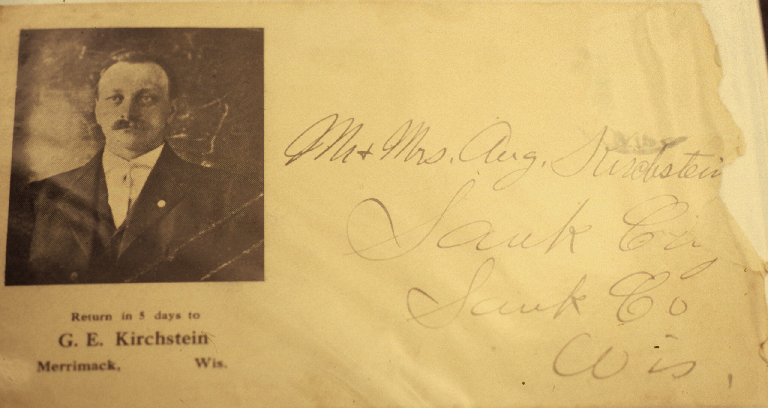 Return in 5 days to
G. E. Kirchstein
Merrimack, Wis.
Mr + Mrs. Aug. Kirchstein
Sauk City
Sauk Co
Wis.